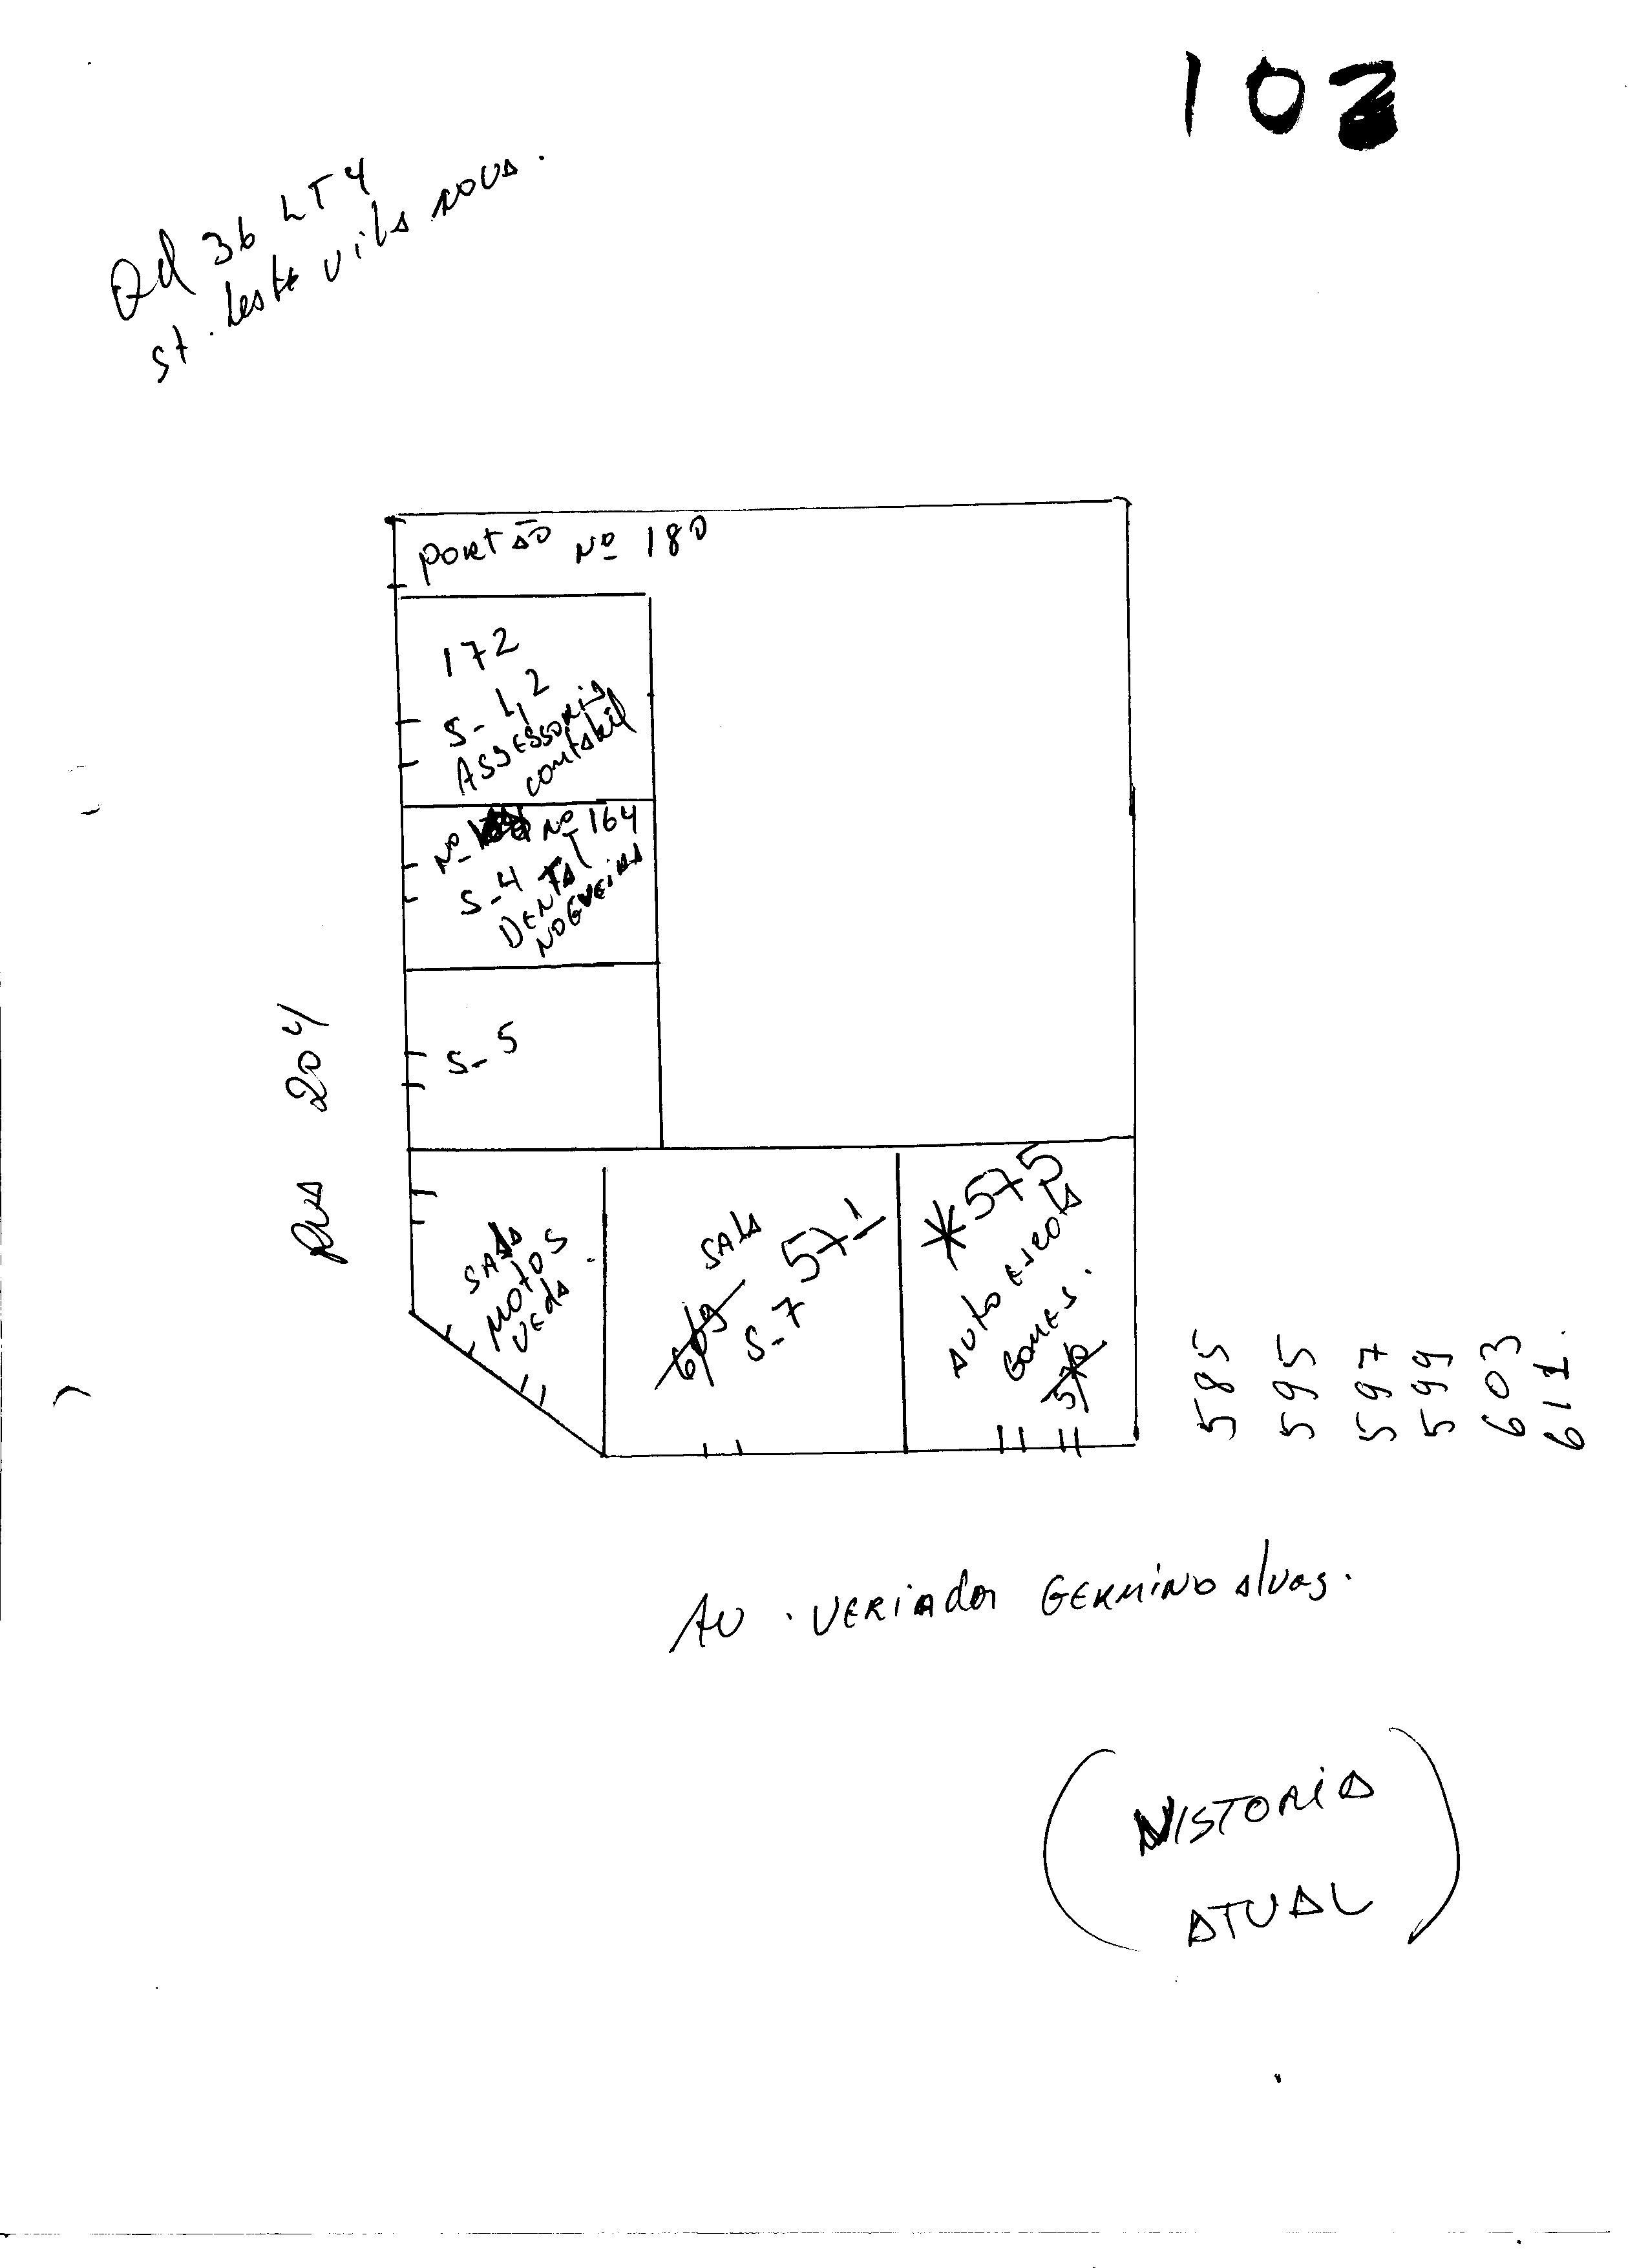 102
Qd 36 LT 4
st. Leste vila nova.
portão Nº 180
172
S-1,2
Assessoria
contabil
Nº Nº 164
S-4 DENTAL
NOGUEIRA
S-5
Rua 204
SALA
MOTOS
VEdA
SALA
571
S-7
*575
Auto escola
Gomes.
570
585
595
597
599
603
611.
AV. VERIADOR GERMINO Alves.
(VISTORIA
ATUAL)